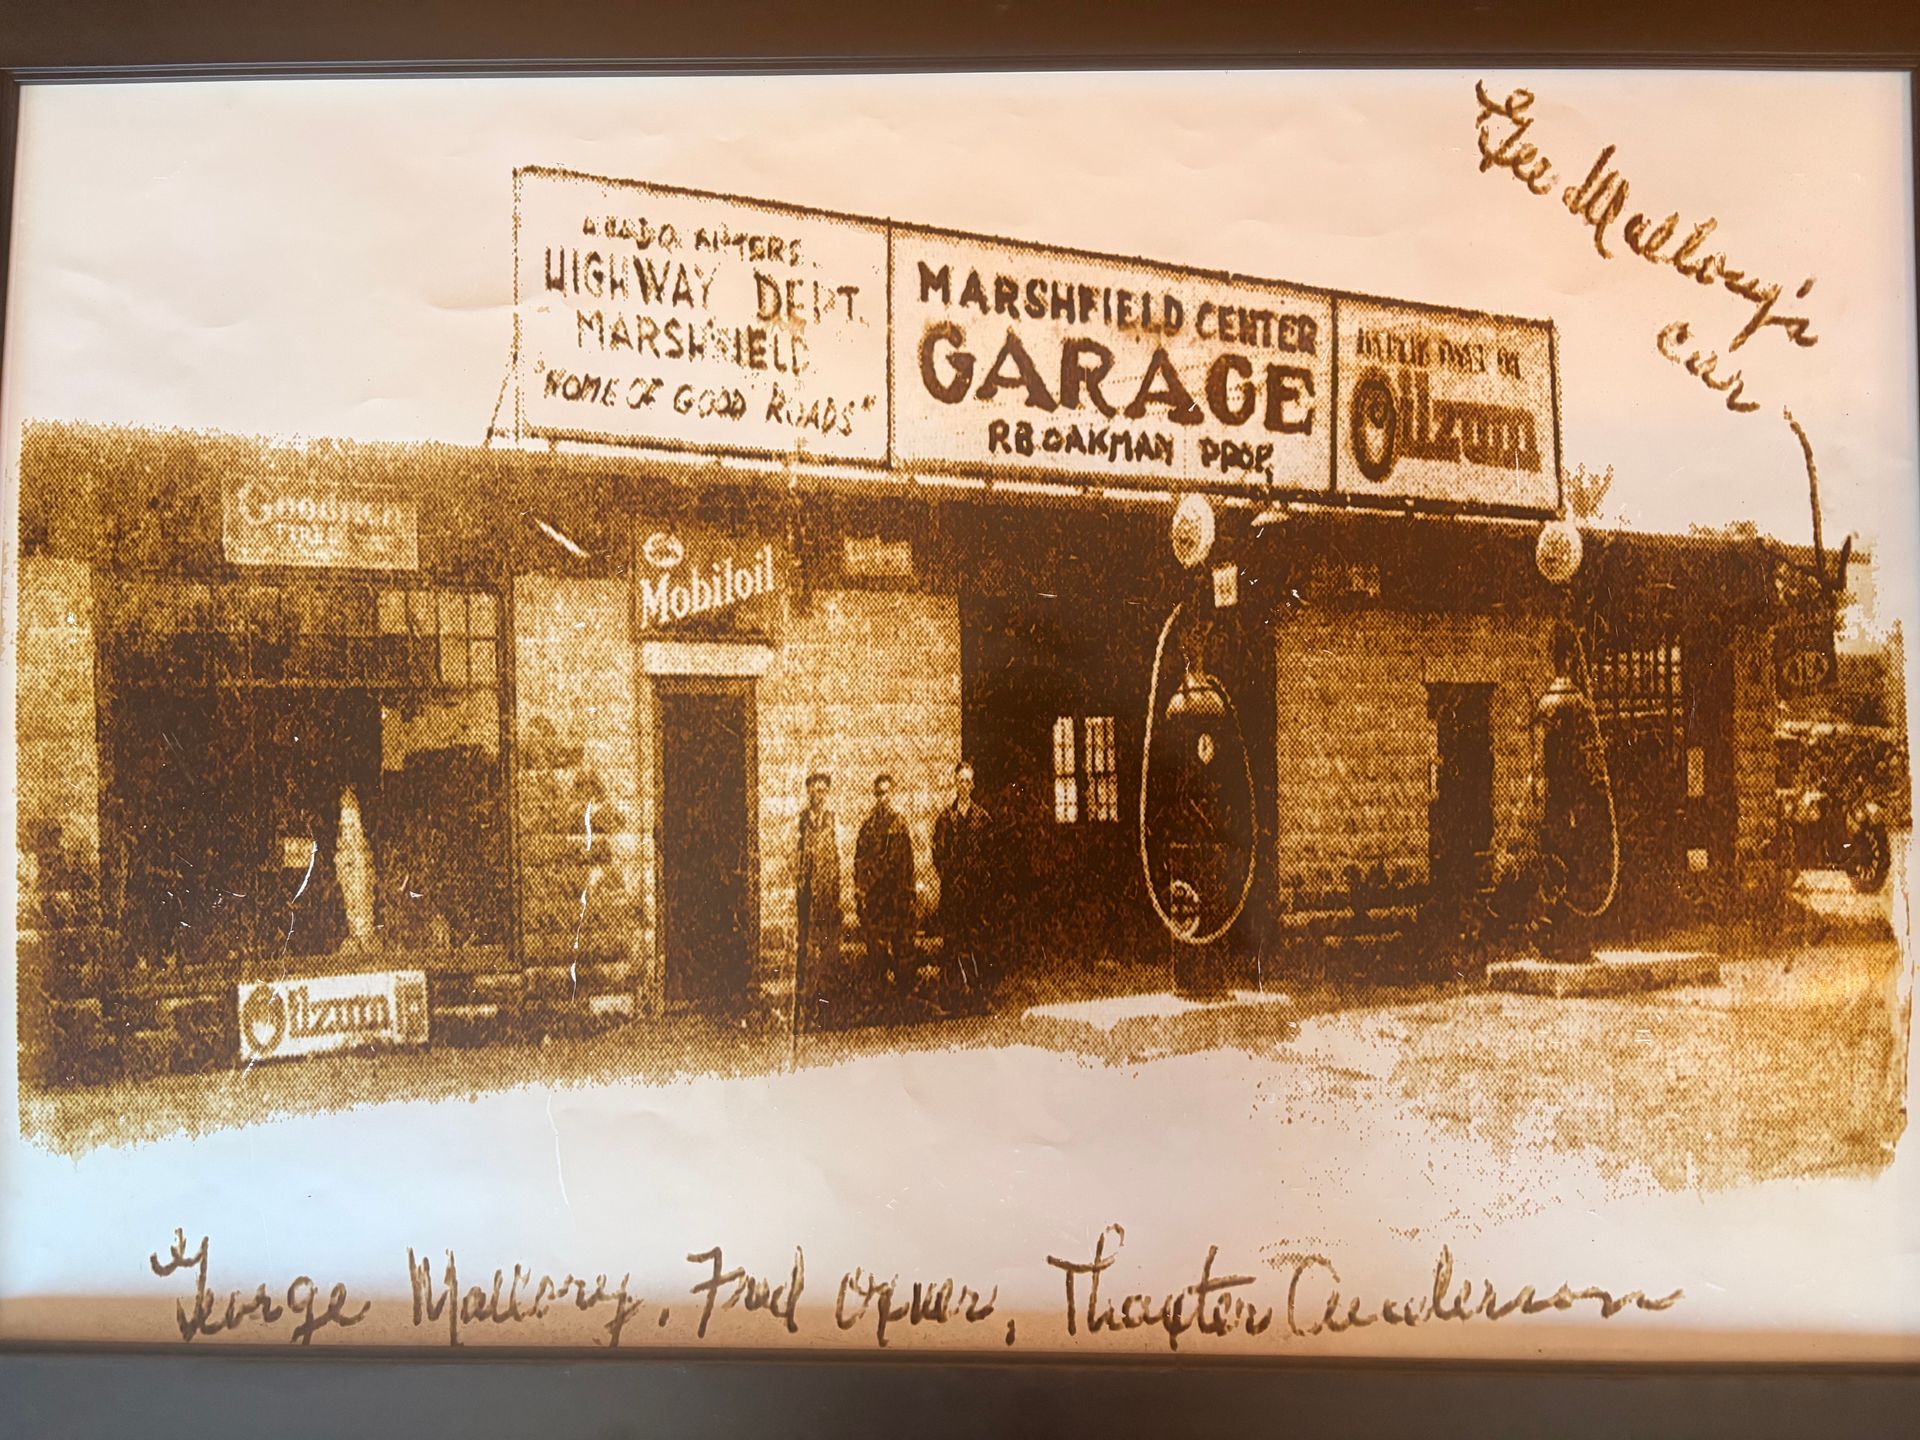 Geo Mallory's
car
HEADQUARTERS
HIGHWAY DEPT.
MARSHFIELD
"HOME OF GOOD ROADS"
MARSHFIELD CENTER
GARAGE
R B OAKMAN PROP.
Oilzum
TIRES
Mobiloil
Oilzum
George Mallory, Fred
Thaxter Anderson